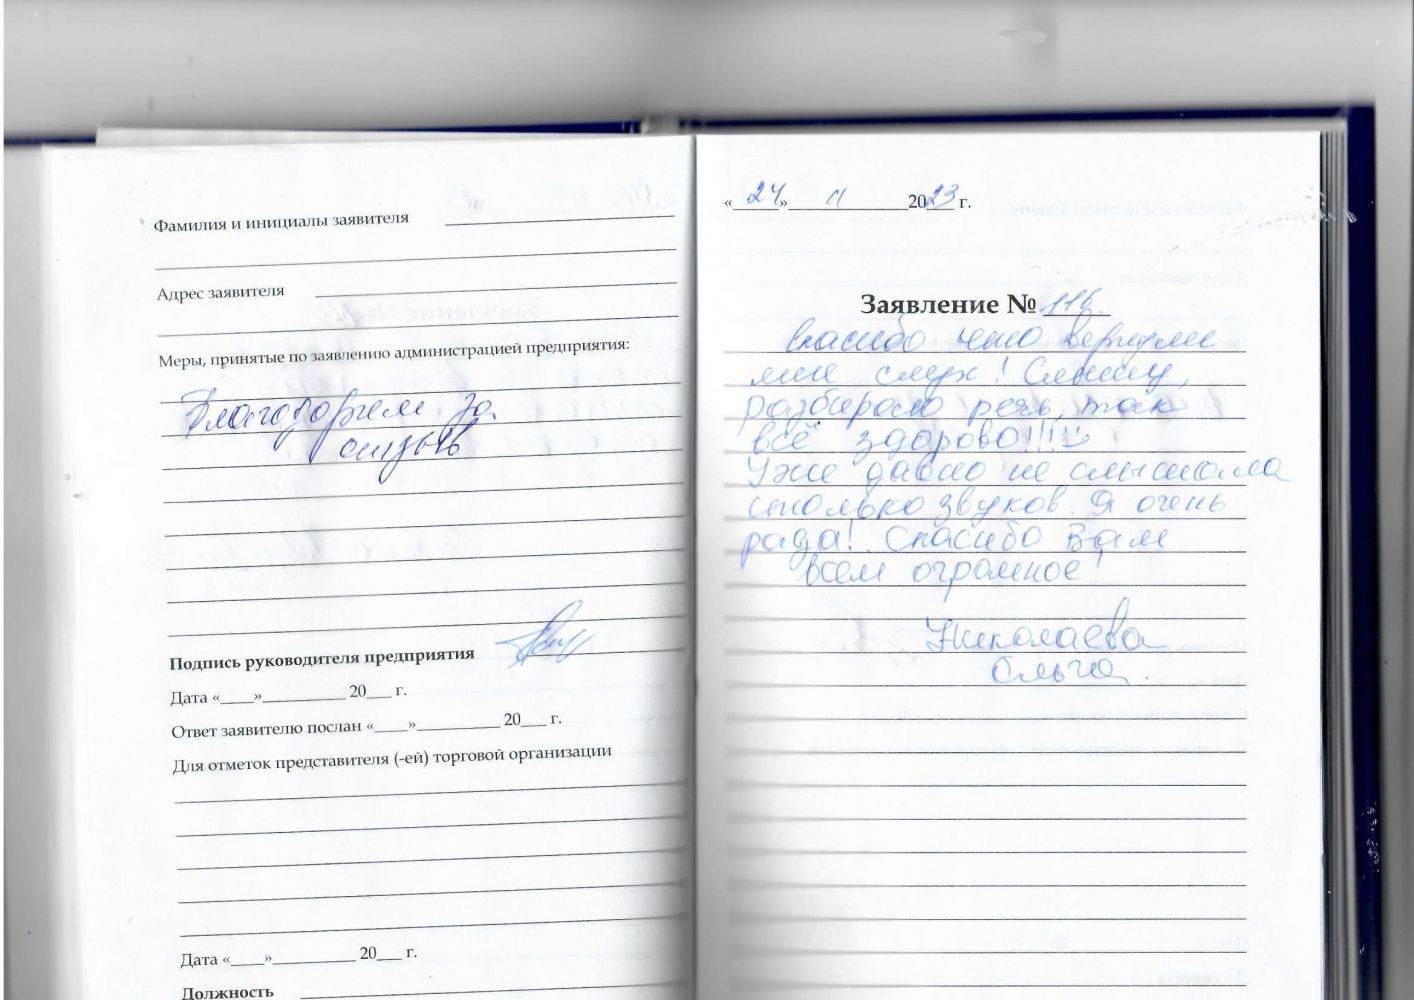 Фамилия и инициалы заявителя
Адрес заявителя
Меры, принятые по заявлению администрацией предприятия:
Благодарим за
отзыв
Подпись руководителя предприятия
Дата «___»__________ 20___ г.
Ответ заявителю послан «___»__________ 20___ г.
Для отметок представителя (-ей) торговой организации
Дата «___»__________ 20___ г.
Должность
«24» 11 2023 г.
Заявление № 116.
Спасибо что вернули
мне слух! Слышу,
разбираю речь, так
всё здорово!!!
Уже давно не слышала
столько звуков. Я очень
рада! Спасибо Вам
всем огромное!
Николаева
Ольга.